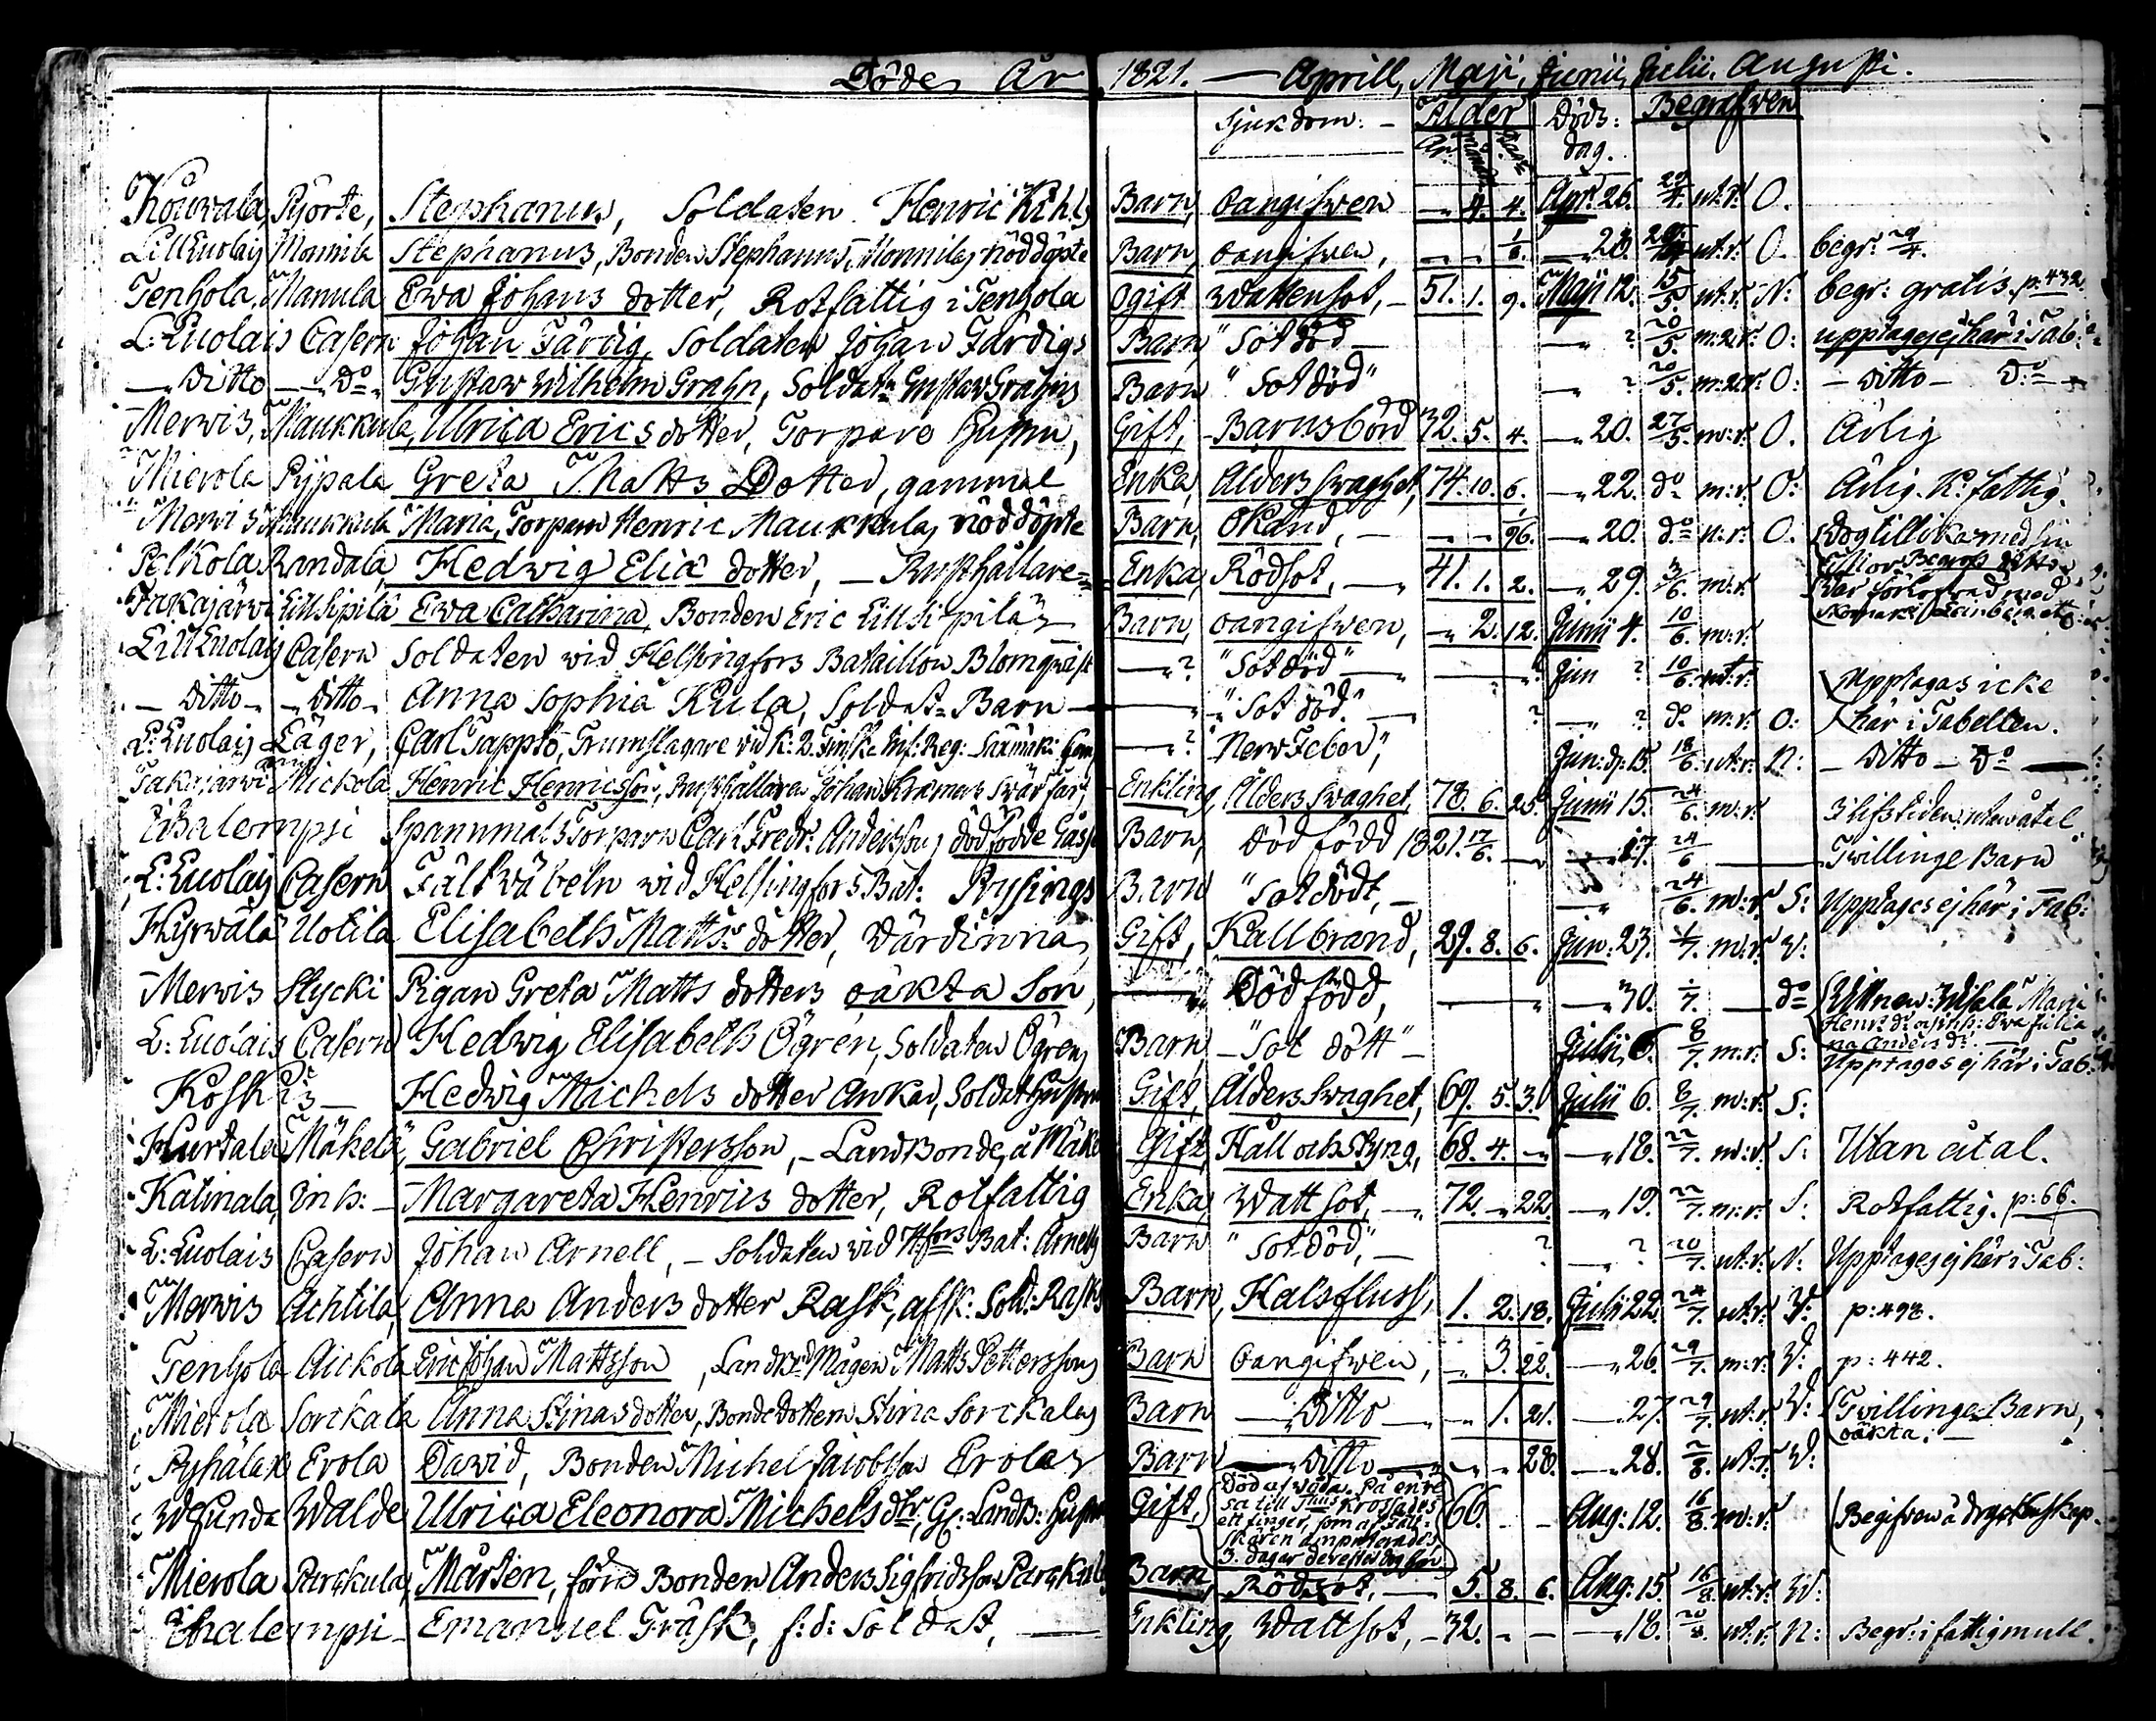 Döde, År 1821. — Aprill, Maji, Junii, Julii, Augusti.
Sjukdom: - Ålder Döds: Begrafven
År månad dag dag.
Kouvala, Pjorte, Stephanus, Soldaten Henric Kihls Barn, oangifven — 4. 4. Apr: 26. 29/4. ut:r. O.
Lill Luolais Monnila Stephanus, Bonden Stephanus Monnilas nöddöpte Barn, oangifven, — 1/6. — 28. ut:r. O. begr: 29/4.
Tenhola, Manula Ewa Johans dotter, Rotfattig i Tenhola Ogift Wattensot, - 51. 1. 9. Maji 12. 15/5. ut:r. N: begr: gratis. p. 432
L: Luolais Casern Johan Färdig, Soldaten Johan Färdigs Barn "Sotdöd — — ? 20/5. m:r. O: upptages ej här i Tab:
— Ditto — Do Gustaw Wilhelm Grahn, Soldatn Gustaw Grahns Barn "Sotdöd" — ? 20/5. m:r. O: — ditto — Do
Merwis, Maukkula, Ulrica Erics dotter, Torpare Hustru, Gift, Barnsbörd 32. 5. 4. — 20. 27/5. m:r. O. Ärlig
Mierola Pypala Greta Matts Dotter, gammal Enka, Ålders svaghet, 74. 10. 6. — 22. do m:r. O: Ärlig. K: fattig.
Merwis Maukkula Maria, Torparn Henric Maukkulas nöddöpte Barn, Okänd, — 96. — 20. do n:r. O. Dog tillika med sin
Pelkola Randala, Hedwig Elia dotter, — Rusthållare- Enka, Rödsot, — 41. 1. 2. — 29. 3/6. m:r.
Takajärvi Lill Sipilä Ewa Catharina, Bonden Eric Lill Sipiläs Barn, oangifven, — 2. 12. Junii 4. 10/6. m:r.
Lill Luolais Casern Soldaten wid Helsingfors Bataillon Blomqwist — ? "Sotdöd" — Jun ? 10/6. ut:r.
— Ditto — Ditto - Anna Sophia Kula, Soldats Barn — "Sot död." — ? — ? do m:r. O: Upptagas icke här i Tabellen.
L: Luolais Läger, Carl Tappto, Trumslagare vid K: 2. Finska Inf: Reg: — ? "Nerw Feber", Jun: d. 15. 18/6. ut:r. N: — Ditto — Do —
Takajärwi Nickola Henric Henricsson, Rusthållaren Johan Kramers Swärfar, Enkling, Ålders Svaghet 78. 6. 25 Junii 15. 24/6. m:r. I lifstiden utan åtal
Ihalempi Spannmåls Torparn Carl Fredr: Anderssons dödfödde Gåsse Barn, Död född 1821. 17/6. — 17. 24/6 — Twillinge Barn
L: Luolais Casern Fältwäbeln wid Helsingfors Bat: Rysings Barn "Sotdödt, — 24/6. m:r. S: Upptages ej här i Tab:
Hyrwälä Uotila Elisabeth Matts dotter, Wärdinna, Gift, Kallbrand, 29. 8. 6. Jun: 23. 1/7. m:r. W:
Merwis Stycki Pigan Greta Matts dotters oäkta Son, Död född, — 30. 1/7. — do
L: Luolais Casern Hedwig Elisabeth Ögren, Soldaten Ögrens Barn — "Sot dött" — Julii 6. 8/7. m:r. S: Upptages ej här i Tab:
Koskis — Hedwig Michels dotter Ankar, Soldat Hustru Gift, Ålders Svaghet, 69. 5. 3. Julii 6. 8/7. m:r. S:
Hurtala Mäkelä, Gabriel Christersson, - Landbonde, å Mäke Gift, Håll och Styng, 68. 4. — — 18. 22/7. m:r. S: Utan åtal.
Katinala, Inh: — Margareta Henrics dotter, Rotfattig Enka, Wattsot, — 72. — 22. — 19. 22/7. m:r. S: Rotfattig. p: 66.
L: Luolais Casern Johan Arnell, - Soldaten wid H:fors Bat: Arnells Barn "Sotdöd", — ? — ? 20/7. ut:r. N: Upptages ej här i Tab:
Merwis Achtila, Anna Anders dotter Rask, afsk: Sold: Rasks Barn, Halsfluss, 1. 2. 18. Julii 22. 24/7. ut:r. W: p: 498.
Tenhola Aickola Eric Johan Mattsson, Landb: Mågen Matts Petterssons Barn Oangifven, — 3. 22. — 26. 29/7. m:r. W: p: 442.
Mierola Sorckala Anna Stinas dotter, Bonde dottern Stina Sorckalas Barn — Ditto — — 1. 21. — 27. 29/7. ut:r. W: Twillinge Barn, oäkta. —
Pyhälax Erola David, Bonden Michel Jacobsson Erolas Barn — Ditto — — 28. — 28. 2/8. ut:r. W:
Wesunda Walde Ulrica Eleonora Michels dtr, G: Landtb: Hustru Gift, Död af wåda. På en resa till Thus krossades ett finger, som af Fältskären amputerades, 3. dagar derefter dog hon 66. — Aug: 12. 16/8. m:r. Begifven å dryckenskap.
Mierola Parckula, Mårten, förre Bonden Anders Sigfridsson Parckulas Barn, Rödsot, — 5. 8. 6. Aug: 15. 16/8. ut:r. W:
Ihalempi — Emanuel Träsk, f: d: Soldat, — Enkling, Wattsot, — 32. — — 18. 20/8. ut:r. N: Begr: i fattigmull.